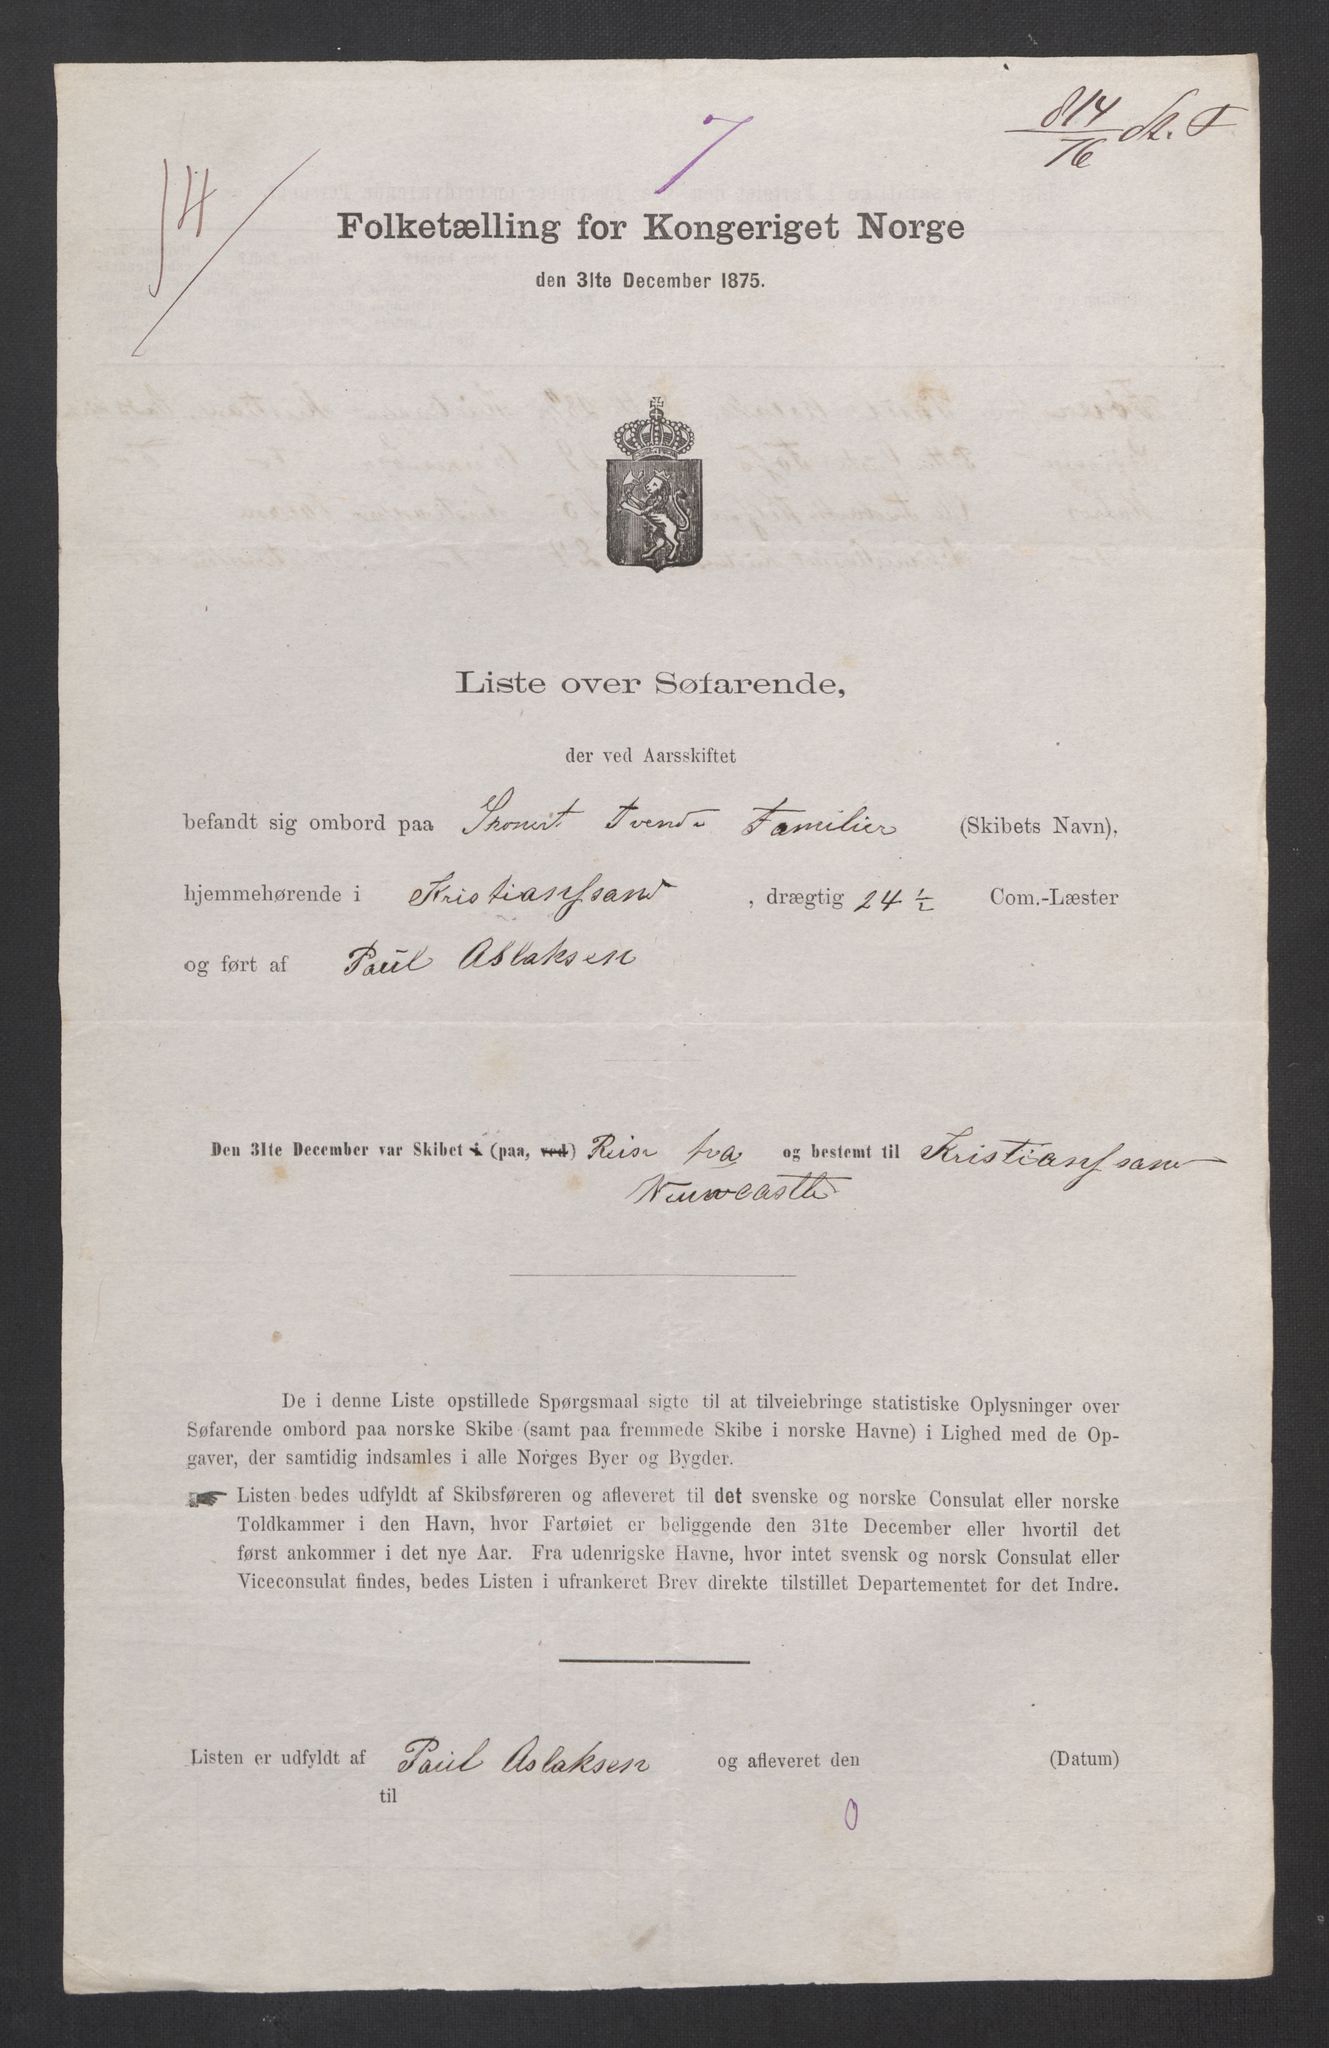 814/76 St. T
7
14
Folketælling for Kongeriget Norge
den 31te December 1875.
Liste over Søfarende,
der ved Aarsskiftet
befandt sig ombord paa Skonert Tvende Familier (Skibets Navn),
hjemmehørende i Kristianssand , drægtig 24 1/2 Com.-Læster
og ført af Paul Aslaksen
Den 31te December var Skibet i (paa, ved) Reise fra og bestemt til Kristianssand
Newcastle
De i denne Liste opstillede Spørgsmaal sigte til at tilveiebringe statistiske Oplysninger over
Søfarende ombord paa norske Skibe (samt paa fremmede Skibe i norske Havne) i Lighed med de Op-
gaver, der samtidig indsamles i alle Norges Byer og Bygder.
☛ Listen bedes udfyldt af Skibsføreren og afleveret til det svenske og norske Consulat eller norske
Toldkammer i den Havn, hvor Fartøiet er beliggende den 31te December eller hvortil det
først ankommer i det nye Aar. Fra udenrigske Havne, hvor intet svensk og norsk Consulat eller
Viceconsulat findes, bedes Listen i ufrankeret Brev direkte tilstillet Departementet for det Indre.
Listen er udfyldt af Paul Aslaksen og afleveret den (Datum)
til
0